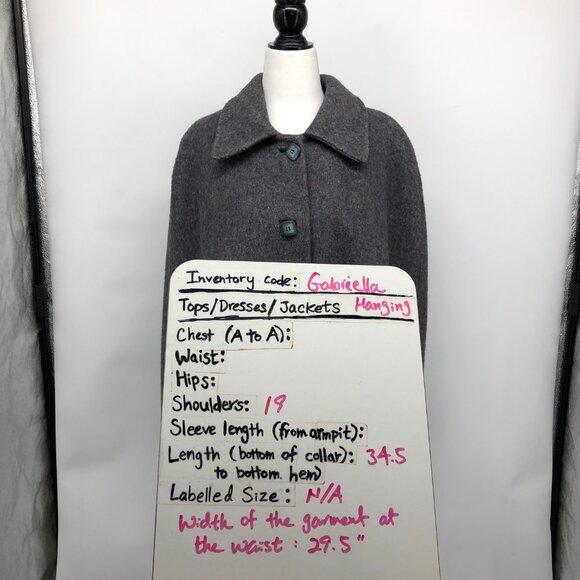 Inventory code: Gabriella
Tops/Dresses/Jackets Hanging
Chest (A to A):
Waist:
Hips:
Shoulders: 19
Sleeve length (from armpit):
Length (bottom of collar): 34.5
to bottom hem)
Labelled Size: N/A
Width of the garment at
the waist: 29.5"